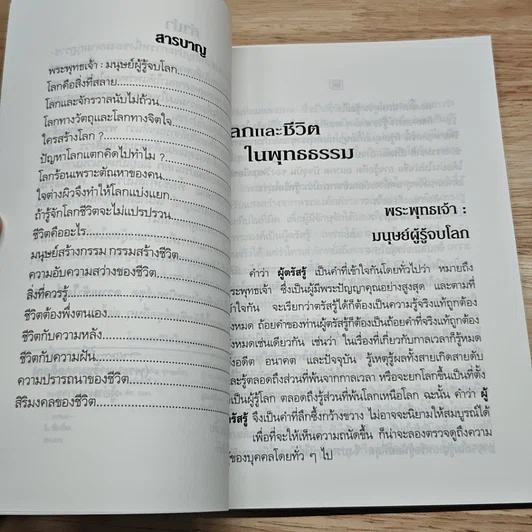 สารบาญ
พระพุทธเจ้า : มนุษย์ผู้รู้จบโลก
โลกคือสิ่งที่สลาย
โลกและจักรวาลนับไม่ถ้วน
โลกทางวัตถุและโลกทางจิตใจ
ใครสร้างโลก ?
ปัญหาโลกแตกคิดไปทำไม ?
โลกร้อนเพราะตัณหาของคน
ใจต่างผิวจึงทำให้โลกแบ่งแยก
ถ้ารู้จักโลกชีวิตจะไม่แปรปรวน
ชีวิตคืออะไร
มนุษย์สร้างกรรม กรรมสร้างชีวิต
ความอับความสว่างของชีวิต
สิ่งที่ควรรู้
ชีวิตต้องพึ่งตนเอง
ชีวิตกับความหลัง
ชีวิตกับความฝัน
ความปรารถนาของชีวิต
สิริมงคลของชีวิต
ลกและชีวิต
ในพุทธธรรม
พระพุทธเจ้า :
มนุษย์ผู้รู้จบโลก
คำว่า ผู้ตรัสรู้ เป็นคำที่เข้าใจกันโดยทั่วไปว่า หมายถึง
ระพุทธเจ้า ซึ่งเป็นผู้มีพระปัญญาคุณอย่างสูงสุด และตามที่
ใจกัน จะเรียกว่าตรัสรู้ได้ก็ต้องเป็นความรู้จริงแท้ถูกต้อง
งหมด ถ้อยคำของท่านผู้ตรัสรู้ก็ต้องเป็นถ้อยคำที่จริงแท้ถูกต้อง
งหมดเช่นเดียวกัน เช่นว่า ในเรื่องที่เกี่ยวกับกาลเวลาก็รู้หมด
งอดีต อนาคต และปัจจุบัน รู้เหตุรู้ผลทั้งสายเกิดสายดับ
ะรู้ตลอดถึงส่วนที่พ้นจากกาลเวลา หรือจะยกโลกขึ้นเป็นที่ตั้ง
เป็นผู้รู้โลก ตลอดถึงรู้ส่วนที่พ้นโลกเหนือโลก ฉะนั้น คำว่า ผู้
รัสรู้ จึงเป็นคำที่ลึกซึ้งกว้างขวาง ไม่อาจจะนิยามให้สมบูรณ์ได้
เพื่อที่จะให้เห็นความถนัดขึ้น ก็น่าจะลองตรวจดูถึงความ
ของบุคคลโดยทั่ว ๆ ไป